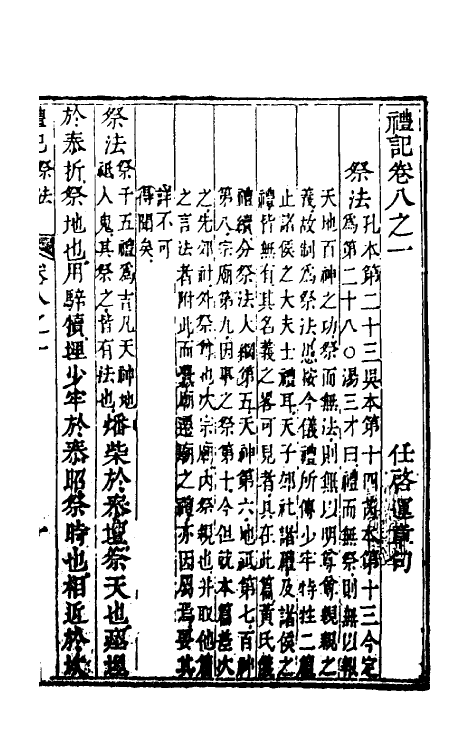 禮記卷八之一
任啓運章句
祭法孔本第二十三吳本第十四芮本第十三今定
爲第二十八○湯三才曰禮而無祭則無以報
天地百神之功祭而無法則無以明尊尊親親之
義故制爲祭法愚按今儀禮所傳少牢特牲二篇
止諸侯之大夫士禮耳天子郊社諸禮及諸侯之
禮皆無有其名義之畧可見者具在此篇黃氏儀
禮續分祭法大綱第五天神第六地示第七百神
第八宗廟第九因事之祭第十今但就本篇差次
之先郊社外祭倂也次宗廟內祭親也并取他篇
之言法者附此而毀廟遷廟之禮亦因焉爲要其
詳不可
得聞矣
祭法祭于五禮爲吉凡天神地
祇人鬼其祭之皆有法也燔柴於泰壇祭天也瘞埋
於泰折祭地也用騂犢埋少牢於泰昭祭時也相近於坎
禮記祭法
卷八之一